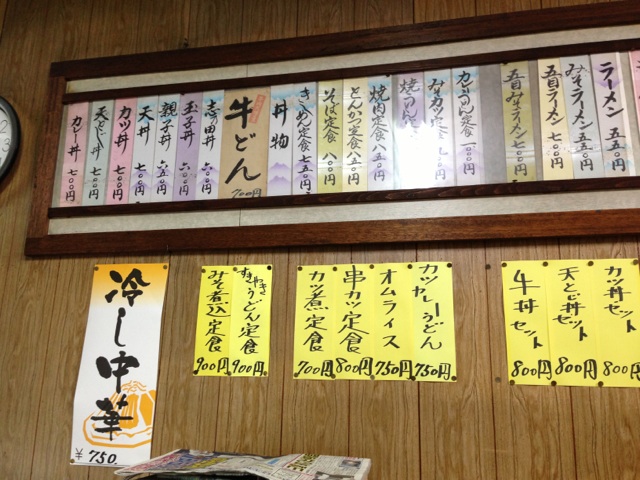 ラーメン 五五〇円
みそラーメン 五五〇円
五目ラーメン 七〇〇円
五目みそラーメン 七〇〇円
カレーうどん定食 八〇〇円
みそカツ定食
焼うどん
焼肉定食 八五〇円
とんかつ定食 八五〇円
そば定食 八〇〇円
きしめん定食 七五〇円
丼物
牛どん 700円
志の田丼 六〇〇円
玉子丼 六〇〇円
親子丼 六五〇円
天丼 七〇〇円
カツ丼 七〇〇円
天とじ丼 七〇〇円
カレー丼 七〇〇円
カツ丼セット 800円
天とじ丼セット 800円
牛丼セット 800円
カツカレーうどん 750円
オムライス 750円
串カツ定食 800円
カツ煮定食 700円
すきやきうどん定食 900円
みそ煮込定食 900円
冷し中華
¥750.